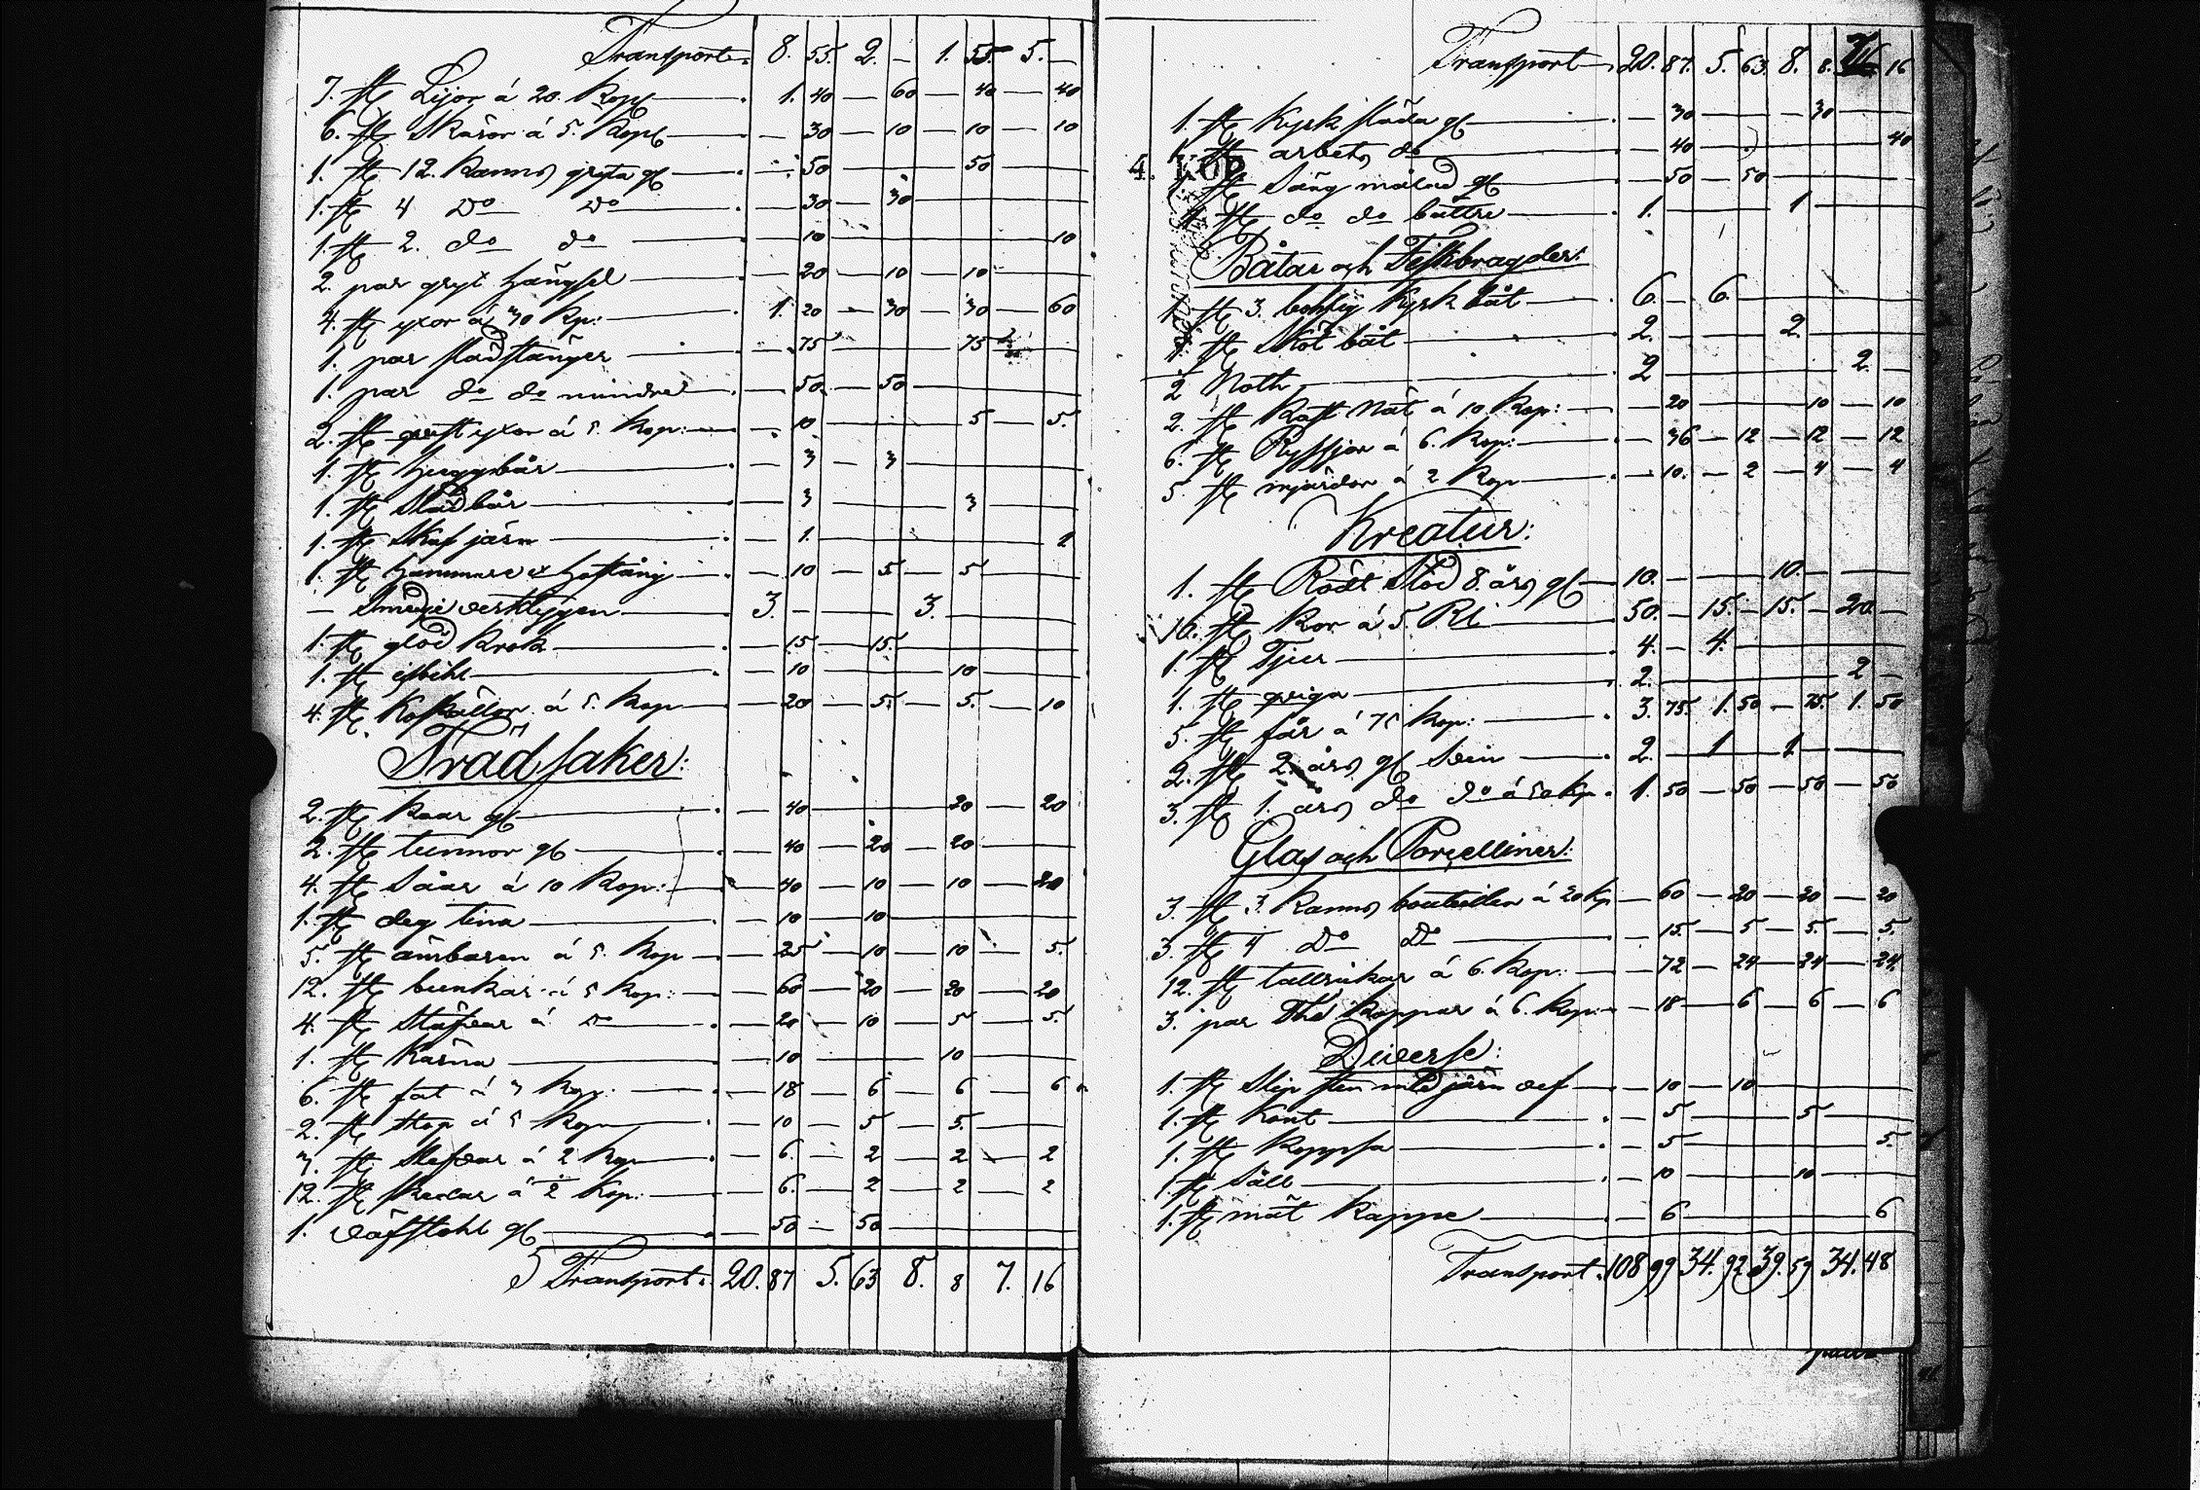 Transport. 8. 55. 2. — 1. 55 5. —
7. st Lijor á 20. Kop — 1. 40 — 60 — 40 — 40
6. st Skäror á 5. Kop — 30 — 10 — 10 — 10
1. st 12. Kanns gryta gl — 50 — 50
1. st 4 Do Do — 30 — 30
1. st 2. do do — 10 — 10
2. par gryt hängsel — 20 — 10 — 10
4. st yxor á 30 Kp: 1. 20 — 30 — 30 — 60
1. par slädstänger — 75 — 75
1. par do do mindre — 50 — 50
2. st yxor á 5. Kop: — 10 — 5 — 5.
1. st huggbår — 3 — 3
1. st Slädbår — 3 — 3
1. st Skaf järn — 1. — 1
1. st hammare & hoftång — 10 — 5 — 5
— Smedje verktygen 3. — 3.
1. st glöd krok — 15 — 15.
1. st isbihl — 10 — 10
4. st Koskällor á 5. Kop — 20 — 5. — 5. — 10
Trädsaker:
2. st Kaar gl — 40 — 20 — 20
2. st tunnor gl — 40 — 20 — 20
4. st Såar á 10 Kop: — 40 — 10 — 10 — 20
1. st deg tina — 10 — 10
5. st ämbaren á 5. Kop — 25 — 10 — 10 — 5.
12. st bunkar á 5 Kop: — 60 — 20 — 20 — 20
4. st Stäfvar á Do — 20 — 10 — 5 — 5.
1. st Kärna — 10 — 10
6. st fat á 3 Kop: — 18 — 6 — 6 — 6
2. st Stop á 5 Kop — 10 — 5 — 5.
3. st Slefvar á 2 Kop — 6. — 2 — 2 — 2
12. st skedar á ½ Kop: — 6. — 2 — 2 — 2
1. väfstohl gl — 50 — 50
Transport. 20. 87 5. 63 8. 8 7. 16
Transport 20. 87. 5. 63. 8. 8. 16
1. st Kyrk släda gl — 30 — 30
1. st arbets do — 40 — 40
4. KOP
1. st Säng målad gl — 50 — 50
1. st do do bättre 1. — 1
Båtar och Fiskbragder:
1. st 3. bohlig Kyrk båt 6. — 6.
1. st Sköt båt 2. — 2.
2 Noth 2 — 2.
2. st Nät á 10 Kop: — 20 — 10 — 10
6. st Ryssjor á 6. Kop: — 36 — 12 — 12 — 12
5. st mjärdor á 2 Kop — 10. — 2 — 4 — 4
Kreatur:
1. st Rödt Stod 8. års gl 10. — 10.
10. st Kor á 5. Rl 50. — 15. — 15. — 20. —
1. st Tjur 4. — 4.
1. st qviga 2. — 2 —
5. st får á 75 Kop: 3. 75. 1. 50 — 75. 1. 50
2. st 2. års gl Svin 2. — 1 — 1
3. st 1. års do do á 50 Kp. 1. 50 — 50 — 50 — 50
Glas och Porcelliner:
3. st 3. Kanns bouteiller á 20 Kp — 60 — 20 — 20 — 20
3. st 4 Do Do — 15. — 5 — 5. — 5.
12. st tallrikar á 6. Kop: — 72 — 24 — 24 — 24
3. par The Koppar á 6. Kop: — 18 — 6 — 6 — 6
Diverse:
1. st Slip sten med järn vef — 10 — 10
1. st Könt — 5 — 5
1. st Kopp — 5 — 5.
1. st Såll — 10 — 10
1. st mät Kappe — 6 — 6
Transport. 108 99 34. 92 39. 59 34. 48